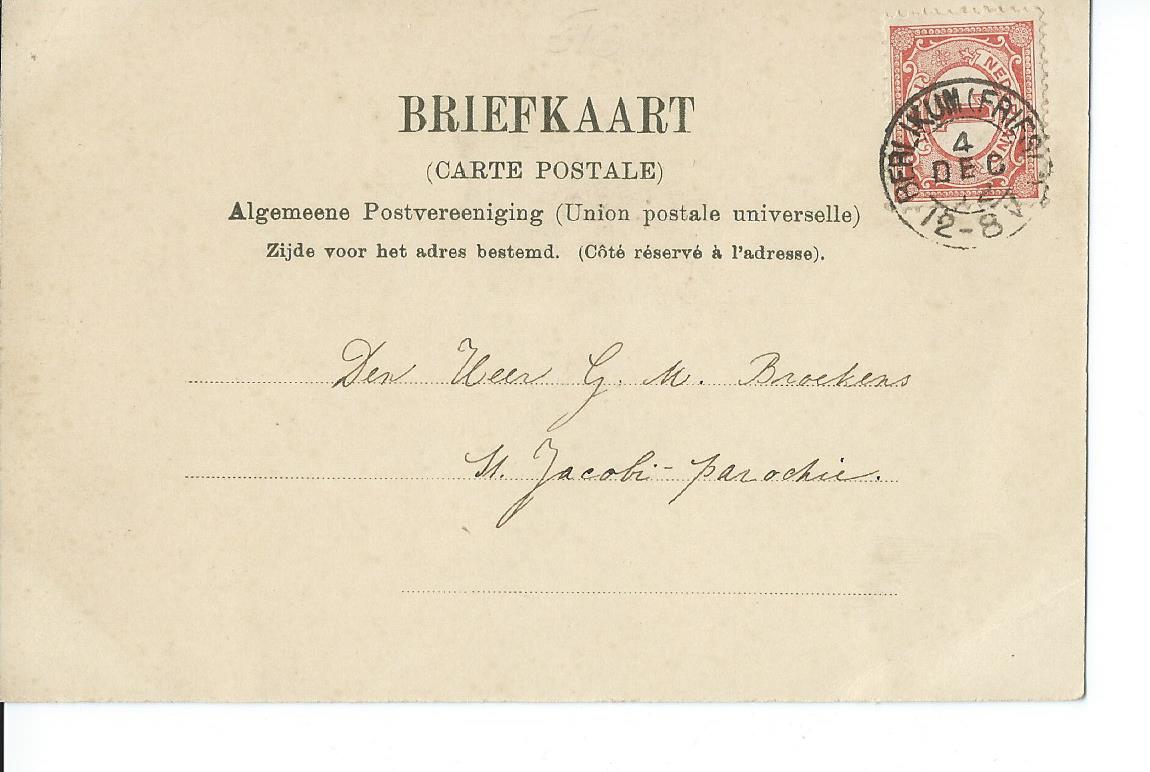 BRIEFKAART
(CARTE POSTALE)
Algemeene Postvereeniging (Union postale universelle)
Zijde voor het adres bestemd. (Côté réservé à l'adresse).
BERLIKUM (FRIESL)
4
DEC
12-8V
Den Heer G. M. Broekens
St. Jacobi-parochie.